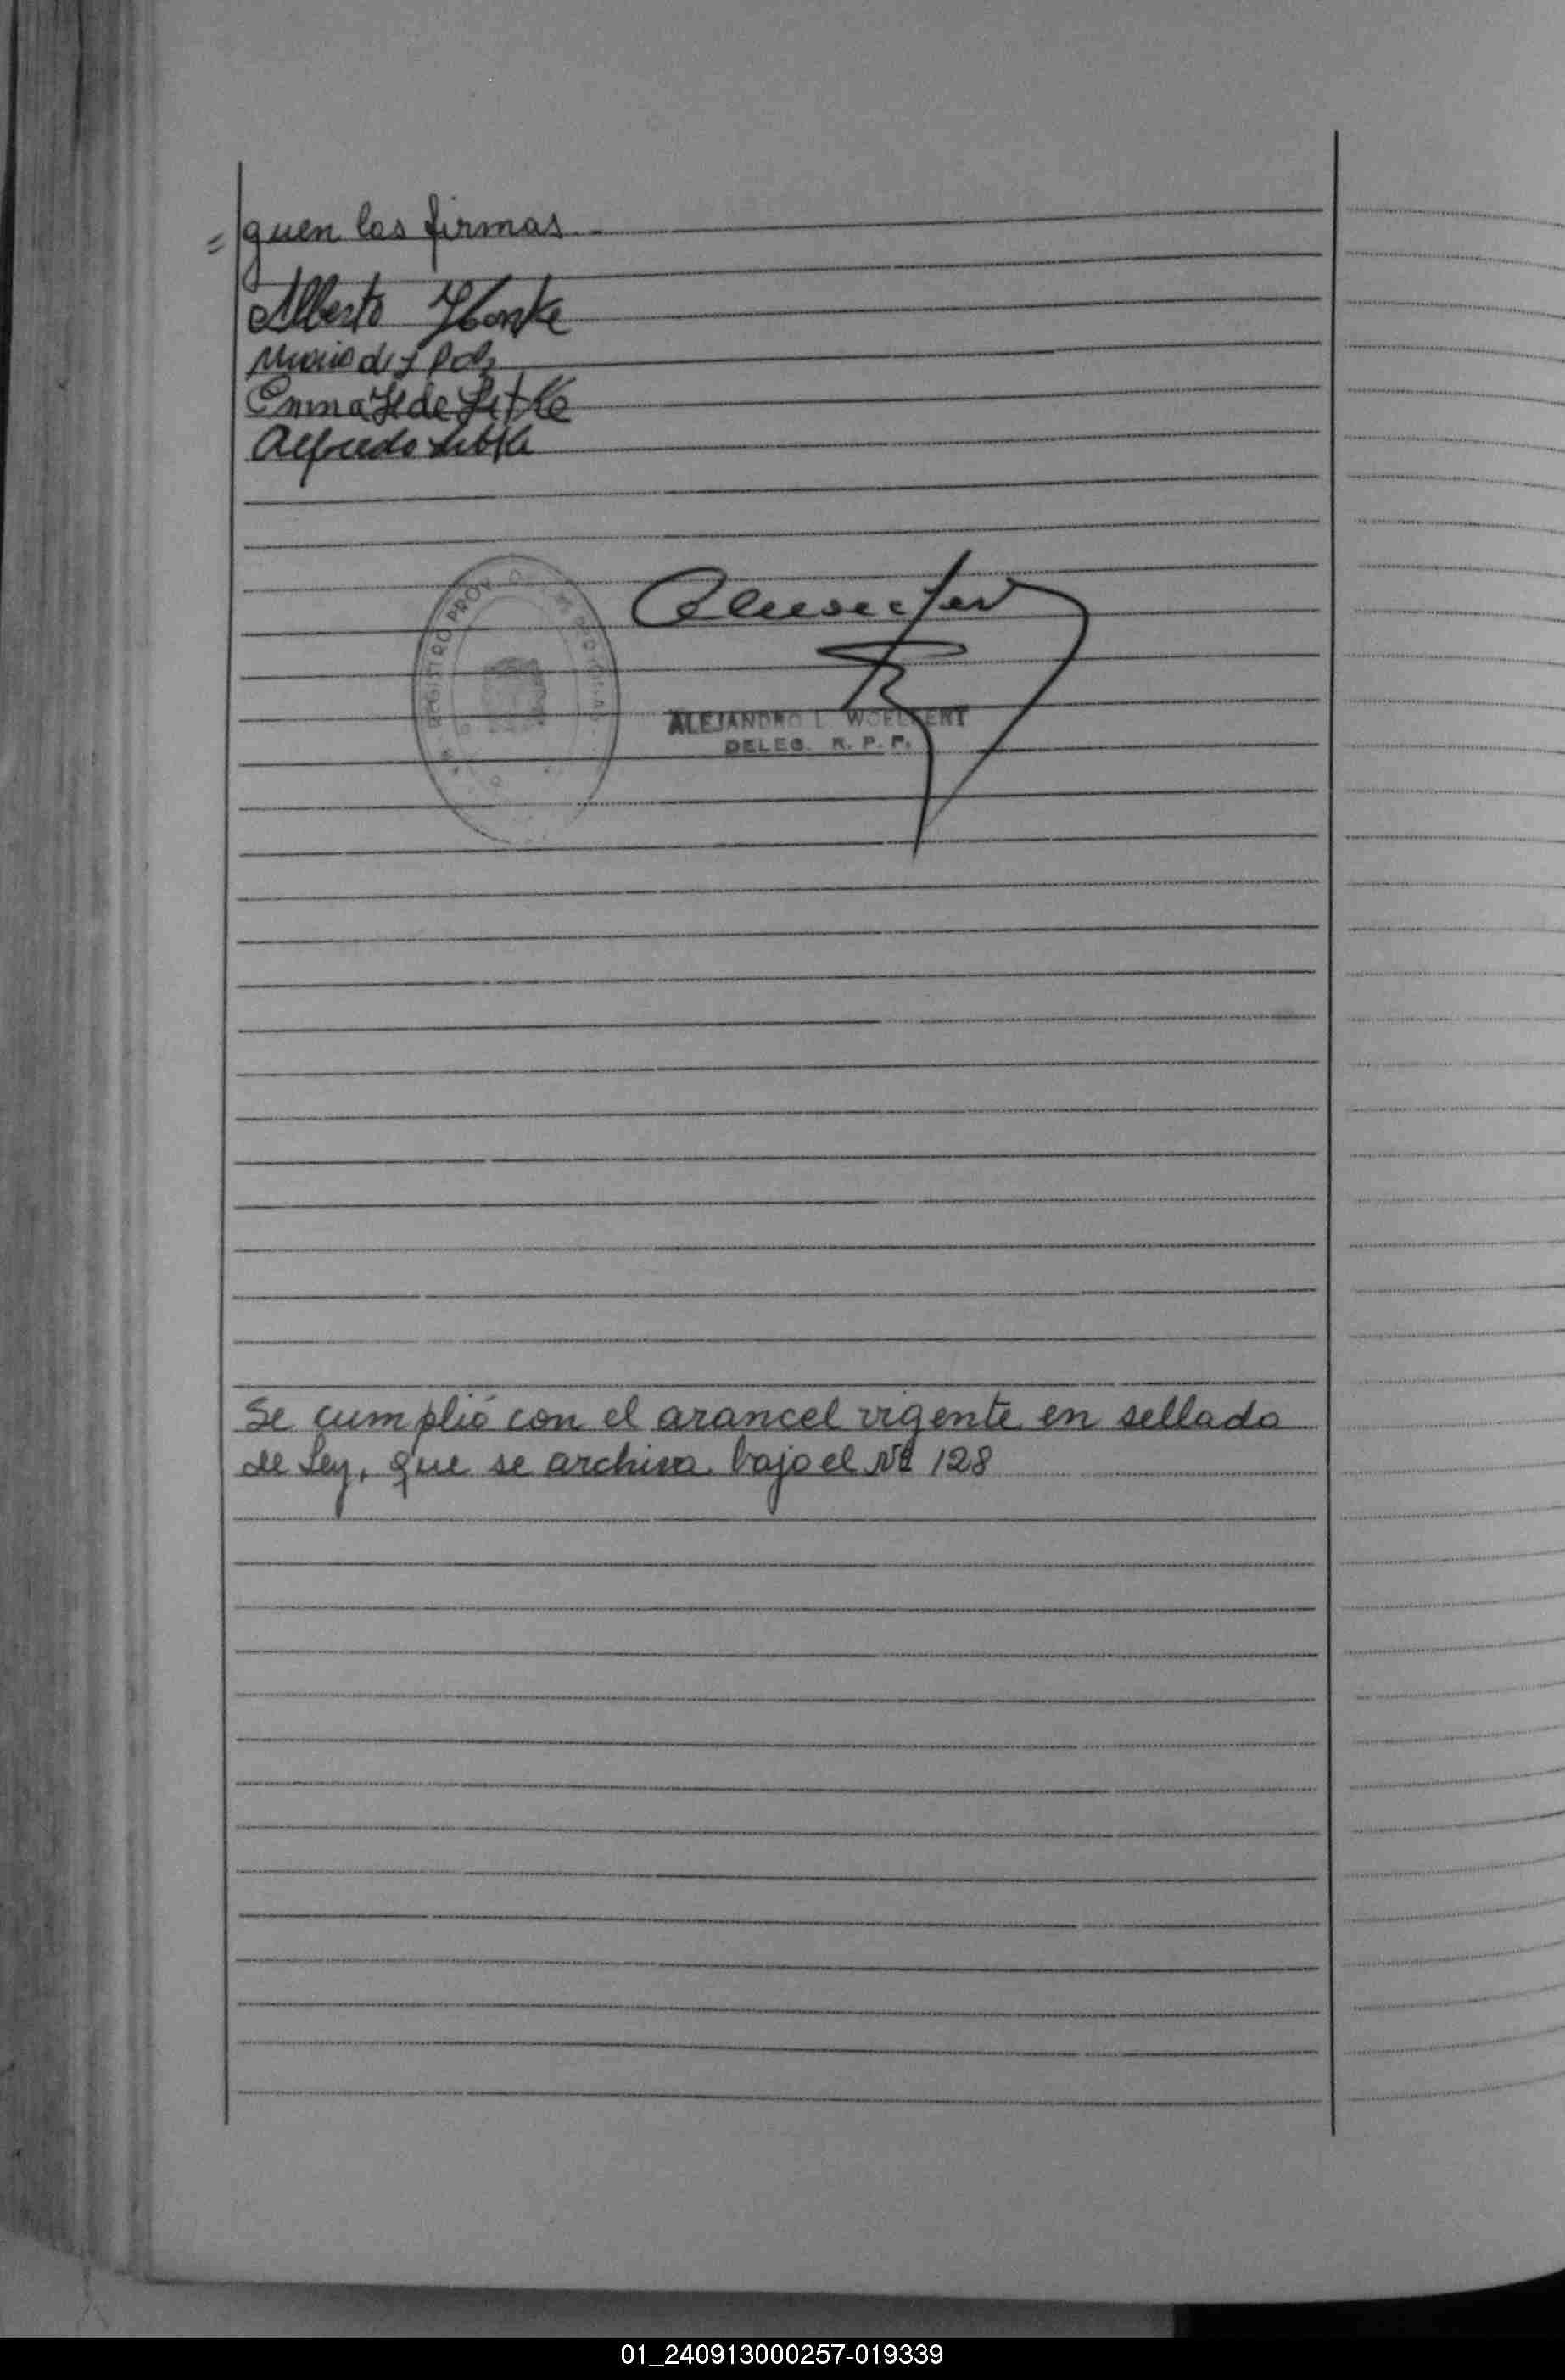 = guen las firmas
Alberto Honke
Emma H de Litke
Alfredo Litke
REGISTRO PROV
ALEJANDRO L. WOELFERT
DELEG. R. P. P.
Se cumplió con el arancel vigente en sellado
de Ley, que se archiva bajo el Nº 128
01_240913000257-019339